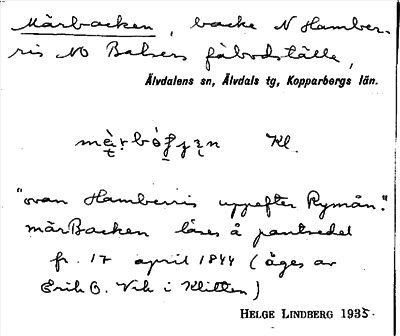 Märbacken, backe N Hamber-
ris NO Balsers fäbodställe,
Älvdalens sn, Älvdals tg, Kopparbergs län.
Kl.
"ovan Hamberris uppefter Rymån."
märBacken låses å pantsedel
fr. 17 april 1844 (äges av
Erik O. Vik i Klitten)
HELGE LINDBERG 1935.